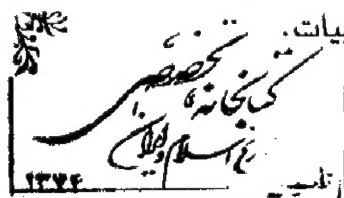 یات.
کتابخانه تخصصی
تاریخ اسلام و ایران
۱۳۷۴